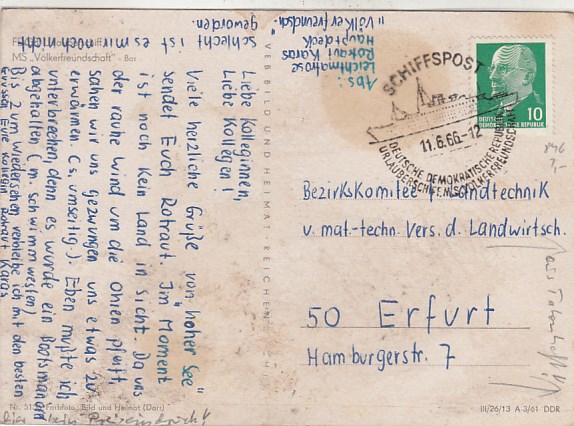 MS „Völkerfreundschaft" - Bar
Liebe Kolleginnen,
Liebe Kollegen!
Viele herzliche Grüße von "hoher See"
sendet Euch Rotraut. Im Moment
ist noch kein Land in Sicht. Da uns
der rauhe Wind um die Ohren pfeift,
sehen wir uns gezwungen uns etwas zu
erwärmen. (s. umseitig.). Eben mußte ich
unterbrechen, denn es wurde ein Bootsmanöver
abgehalten (m. Schwimmwesten)
Bis zum Wiedersehen verbleibe ich mit den besten
Grüßen Eure Kollegin Rotraut Karas
schlecht ist es mir noch nicht
geworden.
Abs:
Leichtmatrose
Rotraut Karas
Hauptdeck
"Völkerfreundsch."
VEB BILD UND HEIMAT REICHENBACH
SCHIFFSPOST
11.6.66-12
DEUTSCHE DEMOKRATISCHE REPUBLIK
URLAUBERSCHIFF MS VÖLKERFREUNDSCHAFT
10
DEUTSCHE
DEMOKRATISCHE REPUBLIK
Bezirkskomitee f. Landtechnik
u. mat.-techn. Vers. d. Landwirtsch.
50 Erfurt
Hamburgerstr. 7
Farbfoto: Bild und Heimat (Dart)
III/26/13 A 3/61 DDR